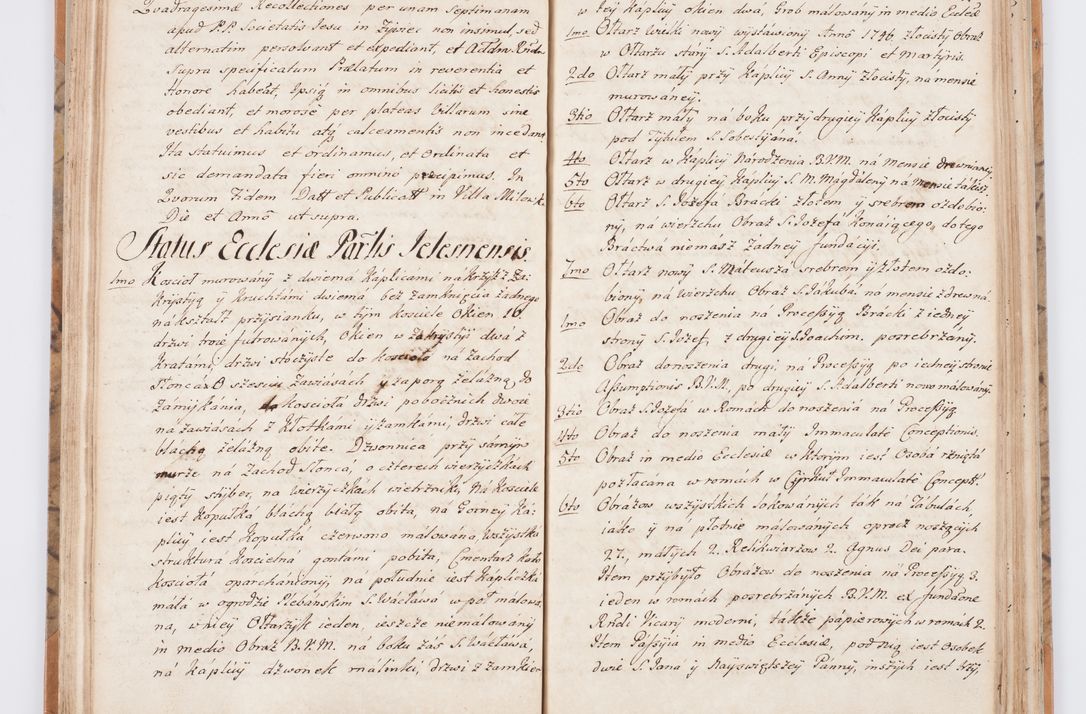 Quadragesimæ Recollectiones per unam Septimanam
apud P.P. Societatis Iesu in Zywiec non insimul, sed
alternatim persolvant et expediant, et
supra specificatum Prælatum in reverentia et
Honore habeāt, Ipsiq; in omnibus licitis et honestis
obediant, et morosè per plateas Villarum sine
vestibus et habitu atq; calceamentis non incedant
Ita statuimus et ordinamus, et Ordinata et
sic demandata fieri omninò præcipimus. In
Quorum Fidem Datt et Publicatt in Villa
Die et Annô ut supra.
Status Ecclesiæ Parlis Jelesnensis.
1mo Kościoł murowány z dwiemá Káplicami ná krzyż z Zá-
krystyą y kruchtámi dwiemá bez zamknięcia żadnego
nákształt przysianku, w tym kosciele Okien 16.
drzwi troie futrowánych, Okien w Zakrystÿi dwá z
Kratámi, drzwi stoczyste do kościoła ná Zachod
Słonca O szesciu Zawiásách y záporą żelázną, do
zámÿkánia, do kosciołá drzwi pobocznich dwoie
ná záwiásách z Kłotkami y zámkámi, drzwi cáłe
bláchą żelázną obite. Dzwonnicá przy sámym
murze ná Zachod Słonca, o czterech wierzyczkách
piąty szÿber, ná Wierzyczkách wietrzniki, Ná kosciele
iest kopułká bláchą biáłą obita, ná Gorney Ka-
plicy iest kopułka czerwono málowána, Wszystká
struktura kościelná gontámi pobita, Cmentarz koło
kosciołá oparchániony, ná południe iest Kapliczká
máłá w ogrodzie Plebáńskim S. Wácłáwá w pół málowá-
na, w ktey Ołtarzyk ieden, ieszcze niemálowány
in medio Obraz B.V.M. ná boku záś S. Wácłáwá,
ná Káplicy dzwonek málinki, drzwi z zámkiem
w teÿ Káplicy Okien dwá, Grob málowánÿ in medio Eccleæ
1mo Ołtarz Wielki nowÿ wÿstáwionÿ Annô 1746. złocistÿ Obraz
w Ołtarzu stárÿ S. Adalberti Episcopi et Martÿris.
2do Ołtarz máłÿ przÿ Káplicÿ S. Annÿ Złocistÿ, ná mensie
murowáneÿ.
3tio Ołtarz máłÿ ná boku przÿ drugieÿ Káplicÿ Złocistÿ
pod Tÿtułem S. Sebestijáná.
4to Ołtarz w Káplicÿ Národzenia B.V.M. ná mensie drewnianeÿ,
5to Ołtarz w drugieÿ Káplicÿ S. M. Magdálenÿ ná mensie tákieÿ
6to Ołtarz S. Jozefá Brácki złotem, ÿ srebrem ozdobio-
nÿ, ná wierzchu Obraz S. Jozefá Konáiącego, do tego
Bráctwá niemász żadneÿ fundacÿi.
7mo Ołtarz nowÿ S. Máteusza srebrem ÿ złotem ozdo-
bionÿ, ná wierzchu Obraz S. Jákubá, ná mensie zdrewná
1mo Obraz do noszenia ná Processÿą Brácki z iedneÿ
stronÿ S. Jozef, z drugieÿ S. Joachim. posrebrzánÿ.
2do Obraz do noszenia drugi, ná Processÿą po iedneÿ stronie
Assumptionis B.V.M. po drugieÿ S. Adalberti nowo málowánÿ.
3tio Obraz S. Jozefá w Romách do noszenia ná Processÿą
4to Obraz do noszenia máłÿ Immaculatæ Conceptionis.
5to Obraz in medio Ecclesiæ w ktorÿm iest Osobá rznięta
pozłácana w romách w Cÿrkuł Immaculatæ Concept:
6to Obrázow wszÿstkich rokowánÿch ták ná Táblách,
iáko ÿ ná płotnie málowánÿch oprocz noszącÿch
27, małÿch 2. Relikwiarzow 2. Agnus Dei para.
Item przÿbÿło Obrázow do noszenia ná Processÿą 3.
ieden w romách posrebrzánÿch B.V.M. ex fundãone
Rndi Vicarÿ moderni, tákże pápierowÿch w romách 2.
Item Pássÿia in medio Ecclesiæ, pod nią iest Osobek
dwie S. Janá ÿ Naÿświętszeÿ Pánnÿ, inszÿch iest trzÿ,